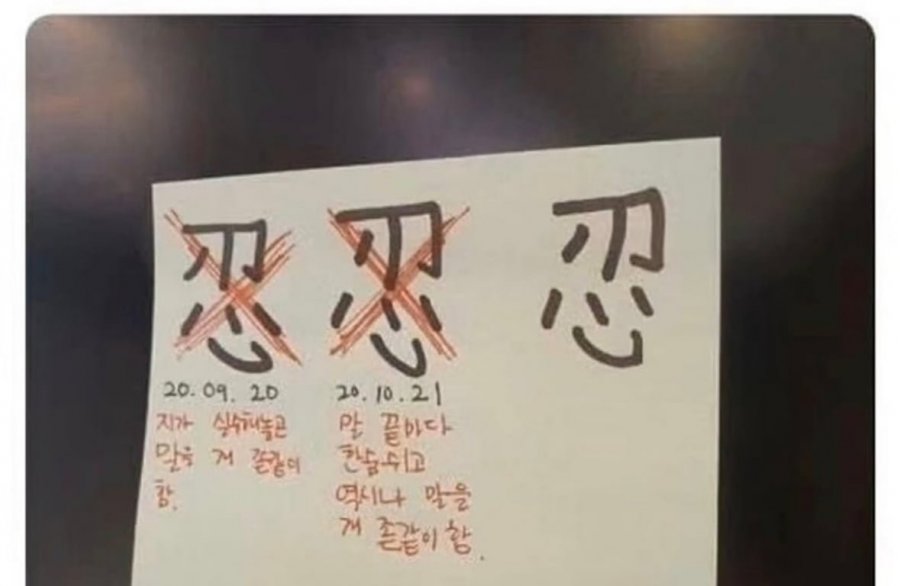 忍 忍 忍
20.09.20
지가 실수해놓고
말을 개 졷같이
함.
20.10.21
말 끝마다
한숨쉬고
역시나 말을
개 졷같이 함.